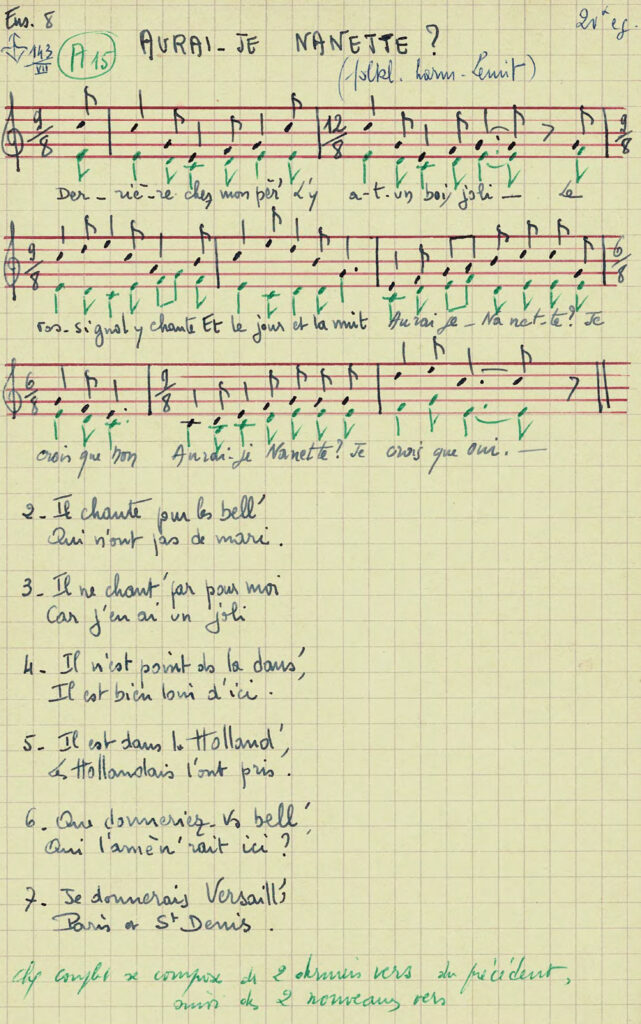 Ens. 8
2 v° eg.
143
VII
A 15
AURAI-JE NANETTE ?
(folkl. harm. Lemit)
9/8 12/8 9/8
Der-riè-re chez mon pèr' L'y a-t-un bois joli — Le
9/8 6/8
ros-signol y chante Et le jour et la nuit Aurai je - Na net-te? Je
6/8 9/8
crois que non Aurai-je Nanette? Je crois que oui. —
2 - Il chante pour les bell'
Qui n'ont pas de mari.
3 - Il ne chant' par pour moi
Car j'en ai un joli
4 - Il n'est point ds la dans',
Il est bien loin d'ici.
5 - Il est dans la Holland',
Les Hollandais l'ont pris.
6 - Que donneriez-vs bell',
Qui l'amèn'rait ici ?
7 - Je donnerais Versaill',
Paris et St Denis.
chq couplet se compose des 2 derniers vers du précédent,
suivi des 2 nouveaux vers